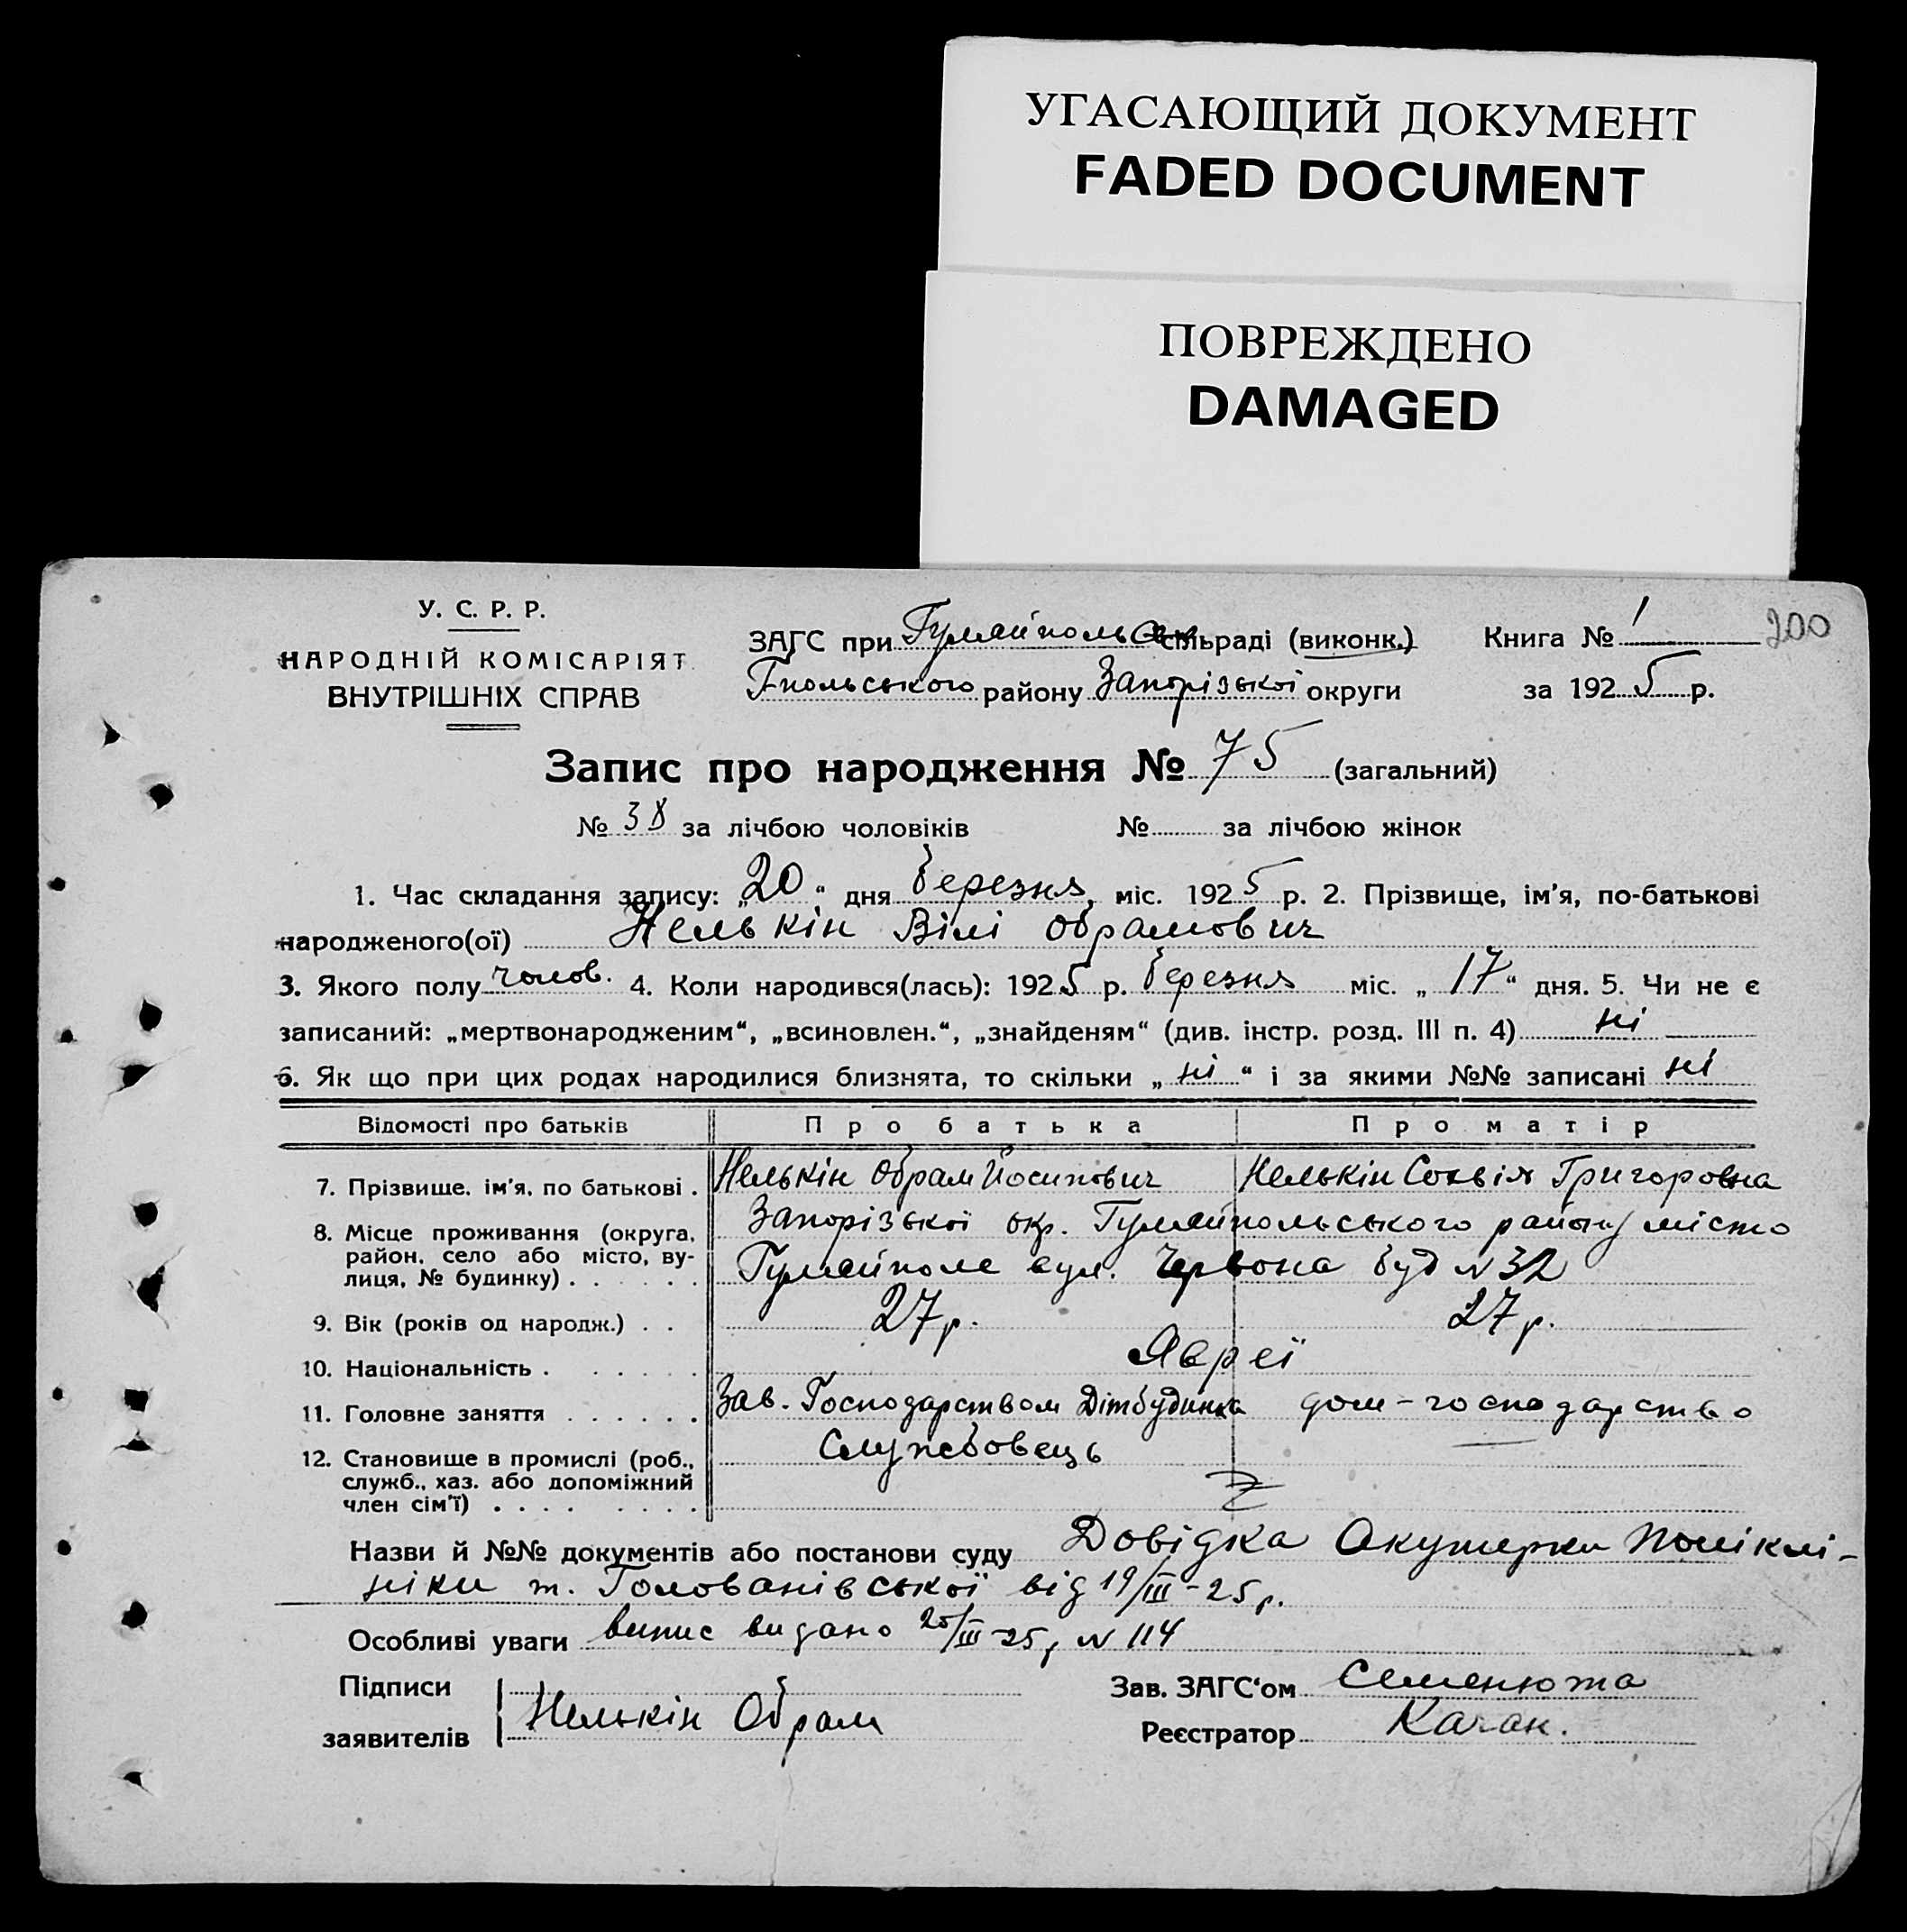 УГАСАЮЩИЙ ДОКУМЕНТ
FADED DOCUMENT
ПОВРЕЖДЕНО
DAMAGED
У. С. Р. Р.
НАРОДНІЙ КОМІСАРІЯТ
ВНУТРІШНІХ СПРАВ
ЗАГС при Гуляйпольск сільраді (виконк.)
Гпольського району Запорізької округи
Книга № 1
200
за 1925 р.
Запис про народження № 75 (загальний)
№ 38 за лічбою чоловіків № за лічбою жінок
1. Час складання запису: „20“ дня березня міс. 1925 р. 2. Прізвище, ім'я, по-батькові
народженого(ої) Нелькін Вілі Обрамович
3. Якого полу чолов. 4. Коли народився(лась): 1925 р. березня міс. „17“ дня. 5. Чи не є
записаний: „мертвонародженим“, „всиновлен.“, „знайденям“ (див. інстр. розд. III п. 4) ні
6. Як що при цих родах народилися близнята, то скільки „ні“ і за якими №№ записані ні
Відомості про батьків Про батька Про матір
7. Прізвище, ім'я, по батькові . Нелькін Обрам Йосипович Нелькін Софвія Григоровна
8. Місце проживання (округа, район, село або місто, вулиця, № будинку) . . . . . Запорізької окр. Гуляйпольського району місто
Гуляйполе вул. Червона буд № 32
9. Вік (років од народж.) . . 27 р. 27 р.
10. Національність . . . . . . Явреї
11. Головне заняття . . . . . . Зав. Господарством Дітбудинка дом-господарство
12. Становище в промислі (роб., служб., хаз. або допоміжний член сім'ї) . . . . . . . . Службовець —
Назви й №№ документів або постанови суду Довідка Акушерки Поліклі-
ніки т. Голованівської від 19/III-25 р.
Особливі уваги випис видано 20/III-25 р № 114
Підписи
заявителів Нелькін Обрам
Зав. ЗАГС'ом Семенюта
Реєстратор Каган.